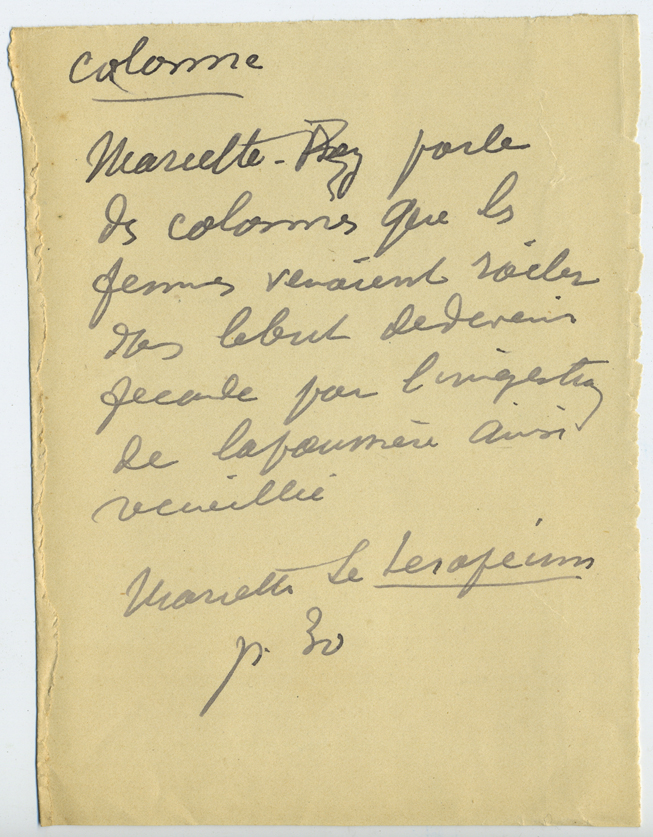 colonne
Mariette - Bey parle
des colonnes que les
femmes venaient râcler
dans le but de devenir
féconde par l'ingestion
de la poussière ainsi
recueillie
Mariette Le Serapeum
p. 30